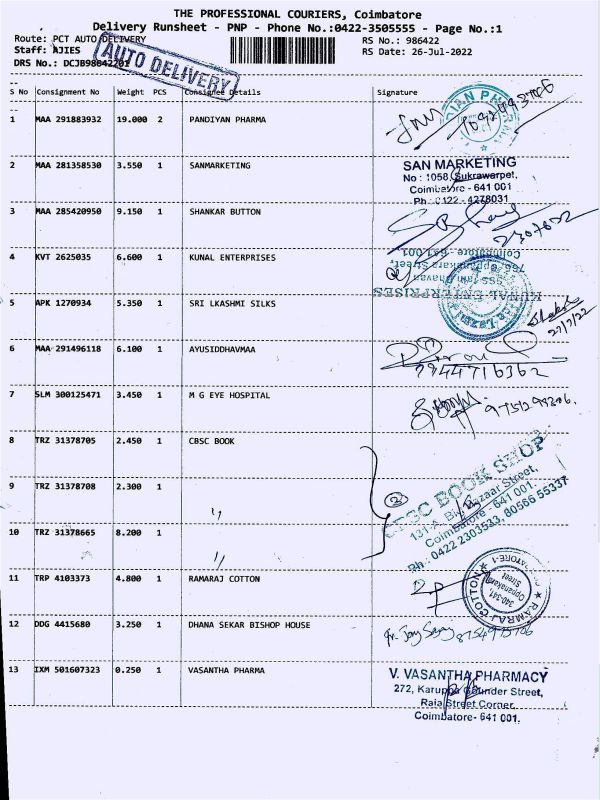 THE PROFESSIONAL COURIERS, Coimbatore
Delivery Runsheet - PNP - Phone No.:0422-3505555 - Page No.:1
Route: PCT AUTO DELIVERY RS No.: 986422
Staff: AJIES RS Date: 26-Jul-2022
DRS No.: DCJB98642201
AUTO DELIVERY
S No Consignment No Weight PCS Consignee Details Signature
1 MAA 291883932 19.000 2 PANDIYAN PHARMA
2 MAA 281358530 3.550 1 SANMARKETING
SAN MARKETING
No : 1058, Sukrawarpet,
Coimbatore - 641 001
Ph : 0422 - 4278031
3 MAA 285420950 9.150 1 SHANKAR BUTTON
4 KVT 2625035 6.600 1 KUNAL ENTERPRISES
KUNAL ENTERPRISES
Coimbatore - 641 001
5 APK 1270934 5.350 1 SRI LKASHMI SILKS
27/7/22
6 MAA 291496118 6.100 1 AYUSIDDHAVMAA
7944716362
7 SLM 300125471 3.450 1 M G EYE HOSPITAL
8 TRZ 31378705 2.450 1 CBSC BOOK
9 TRZ 31378708 2.300 1 〃
10 TRZ 31378665 8.200 1 〃
CBSC BOOK SHOP
131-A, Big Bazaar Street,
Coimbatore - 641 001.
Ph : 0422 2303533, 80566 55337
11 TRP 4103373 4.800 1 RAMARAJ COTTON
RAMRAJ COTTON
340-341
Oppanakara
Street
COIMBATORE-1
12 DDG 4415680 3.250 1 DHANA SEKAR BISHOP HOUSE
13 IXM 501607323 0.250 1 VASANTHA PHARMA
V. VASANTHA PHARMACY
272, Karuppa Gounder Street,
Raja Street Corner,
Coimbatore- 641 001.